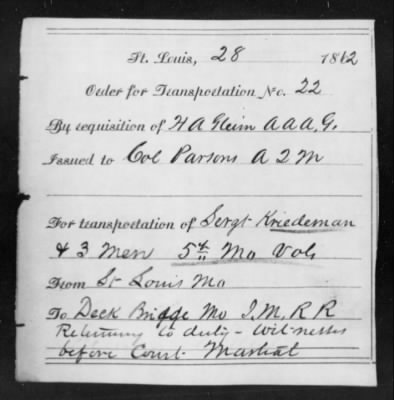 St. Louis, 28 1862
Order for Transportation No. 22
By requisition of H A Gleim A A A, G.
Issued to Col Parsons A Q M
For transportation of Sergt Kriedeman
& 3 Men 5th Mo Vols
From St Louis Mo
To Deck Bridge Mo I, M, R R
Returning to duty - witnesses
before Court Martial